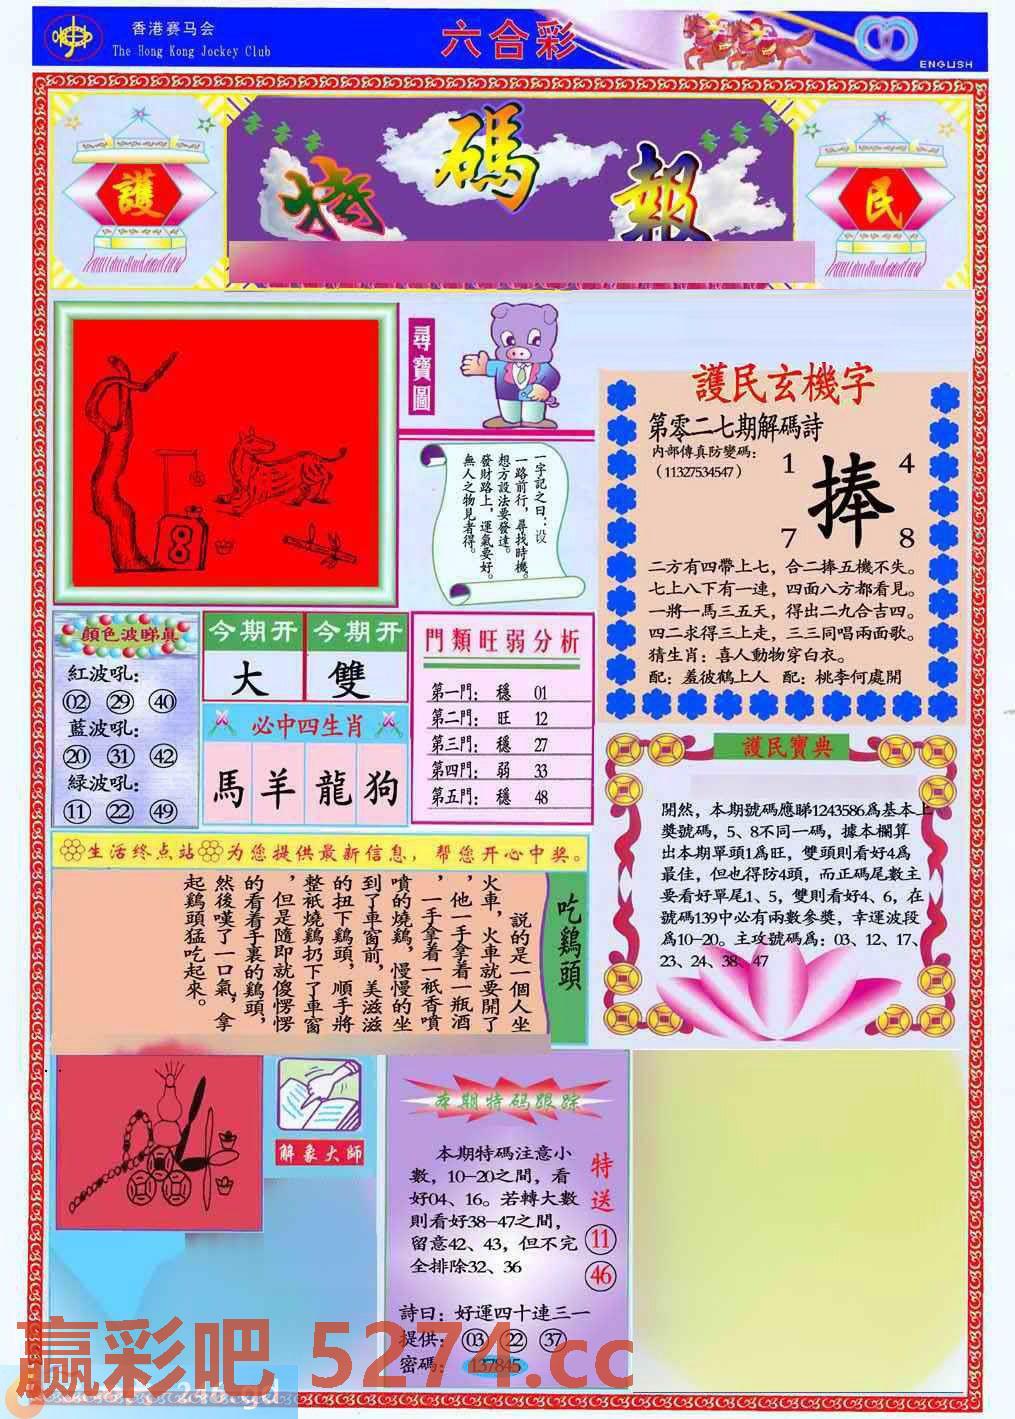 香港赛马会
The Hong Kong Jockey Club
六合彩
ENGLISH
護
特碼報
民
尋寶圖
8
一字記之曰：設
一路前行，尋找時機。
想方設法要發達。
發財路上，運氣要好。
無人之物見者得。
護民玄機字
第零二七期解碼詩
内部傳真防變碼：
（11327534547）
1 4
捧
7 8
二方有四帶上七，合二捧五機不失。
七上八下有一連，四面八方都看見。
一將一馬三五天，得出二九合吉四。
四二求得三上走，三三同唱兩面歌。
猜生肖：喜人動物穿白衣。
配：羞彼鶴上人 配：桃李何處開
顏色波睇真
紅波吼:
02 29 40
藍波吼:
20 31 42
綠波吼:
11 22 49
今期开 今期开
大 雙
必中四生肖
馬 羊 龍 狗
門類旺弱分析
第一門： 穩 01
第二門： 旺 12
第三門： 穩 27
第四門： 弱 33
第五門： 穩 48
護民寶典
開然，本期號碼應睇1243586爲基本上
獎號碼，5、8不同一碼，據本欄算
出本期單頭1爲旺，雙頭則看好4爲
最佳，但也得防4頭，而正碼尾數主
要看好單尾1、5，雙則看好4、6，在
號碼139中必有兩數參獎，幸運波段
爲10-20。主攻號碼爲：03、12、17、
23、24、38、47
生活终点站 为您提供最新信息，帮您开心中奖。
吃鷄頭
説的是一個人坐
火車，火車就要開了
，他一手拿着一瓶酒
，一手拿着一衹香噴
噴的燒鷄，慢慢的坐
到了車窗前，美滋滋
的扭下鷄頭，順手將
整衹燒鷄扔下了車窗
，但是隨即就傻愣愣
的看着手裏的鷄頭，
然後嘆了一口氣，拿
起鷄頭猛吃起來。
解象大師
本期特码跟踪
本期特码注意小
數，10-20之間，看
好04、16。若轉大數
則看好38-47之間，
留意42、43，但不完
全排除32、36
特送
11
46
詩曰：好運四十連三一
提供： 03 22 37
密碼： 137845
赢彩吧 5274.cc
246.gd